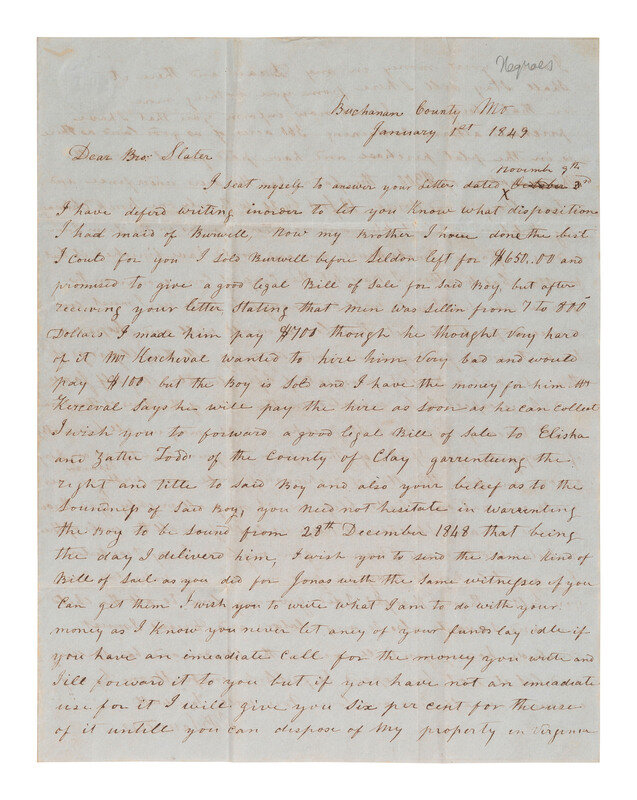 Negroes
Buchanan County Mo
January 1st 1849
Dear Bro. Slater
novemb 9th
I seat myself to answer your letter dated x October 3rd
I have deferd writing inorder to let you know what disposition
I had maid of Burwell, now my Brother I have done the best
I could for you I sold Burwell before Seldon left for $650..00 and
promised to give a good legal Bill of Sale for said Boy but after
receiving your letter Stating that men was sellin from 7 to 800
Dollars I made him pay $700 though he thought very hard
of it Mr Kercheval wanted to hire him very bad and would
pay $100 but the Boy is Sold and I have the money for him Mr
Kerceval Says he will pay the hire as soon as he can collect
I wish you to forward a good legal Bill of Sale to Elisha
and Todd of the County of Clay garrenteing the
right and title to said Boy and also your belief as to the
Soundness of Said Boy, you need not hesitate in warrenting
the Boy to be sound from 28th December 1848 that being
the day I deliverd him, I wish you to send the same kind of
Bill of Sail as you did for Jonas with the same witnesses if you
can get them I wish you to write what I am to do with your
money as I know you never let aney of your funds lay idle if
you have an imeadiate call for the money you write and
Ill forward it to you but if you have not an imeadiate
use for it I will give you Six per cent for the use
of it untill you can dispose of my property in Virginia